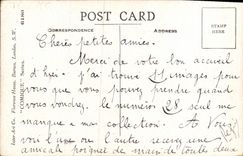 POST CARD
CORRESPONDENCE
ADDRESS
Chères petites amies.
Merci de votre bon accueil
d'hier. J'ai trouvé 11 images pour
vous que vous pourrez prendre quand
vous voudrez. le numéro 28 seul me
manque à ma collection. A vous
voir l'une ou l'autre recevez une
amicale poignée de main de toutes deux
"COMIQUE" Series.
Inter-Art Co., Florence House, Barnes, London, S.W.